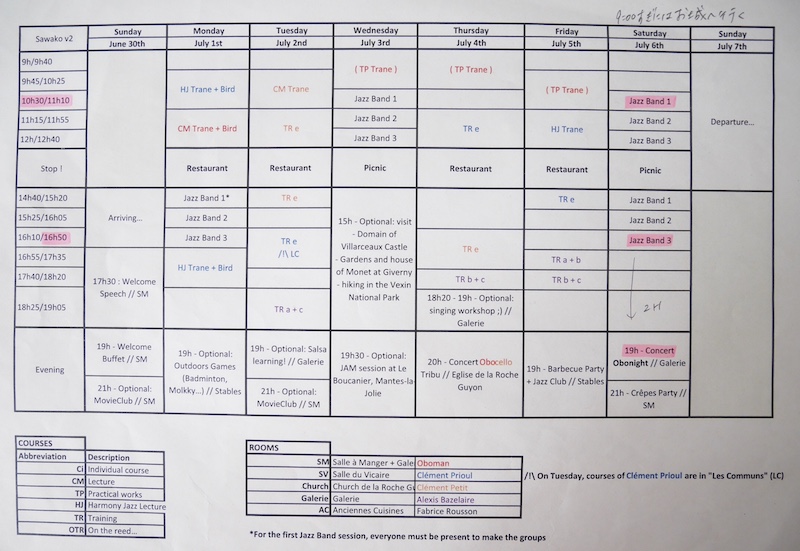 9:00までにはお城へ行く
Sawako v2 Sunday Monday Tuesday Wednesday Thursday Friday Saturday Sunday
June 30th July 1st July 2nd July 3rd July 4th July 5th July 6th July 7th
9h/9h40
( TP Trane ) ( TP Trane )
9h45/10h25
HJ Trane + Bird CM Trane ( TP Trane )
10h30/11h10 Jazz Band 1 Jazz Band 1
11h15/11h55 Jazz Band 2 Jazz Band 2 Departure...
CM Trane + Bird TR e TR e HJ Trane
12h/12h40 Jazz Band 3 Jazz Band 3
Stop ! Restaurant Restaurant Picnic Restaurant Restaurant Picnic
14h40/15h20 Jazz Band 1* TR e TR e Jazz Band 1
15h25/16h05 Arriving... Jazz Band 2 Jazz Band 2
16h10/16h50 Jazz Band 3 Jazz Band 3
TR e
/!\ LC
TR e
15h - Optional: visit
- Domain of
Villarceaux Castle
- Gardens and house
of Monet at Giverny
- hiking in the Vexin
National Park
16h55/17h35 HJ Trane + Bird TR a + b
17h40/18h20 TR b + c TR b + c
17h30 : Welcome
Speech // SM
18h25/19h05 TR a + c
18h20 - 19h - Optional:
singing workshop ;) //
Galerie
2H
Evening
19h - Welcome
Buffet // SM
21h - Optional:
MovieClub // SM
19h - Optional:
Outdoors Games
(Badminton,
Molkky...) // Stables
19h - Optional: Salsa
learning! // Galerie
21h - Optional:
MovieClub // SM
19h30 - Optional:
JAM session at Le
Boucanier, Mantes-la-
Jolie
20h - Concert Obocello
Tribu // Eglise de la Roche
Guyon
19h - Barbecue Party
+ Jazz Club // Stables
19h - Concert
Obonight // Galerie
21h - Crêpes Party //
SM
COURSES
Abbreviation Description
Ci Individual course
CM Lecture
TP Practical works
HJ Harmony Jazz Lecture
TR Training
OTR On the reed...
ROOMS
SM Salle à Manger + Gale Oboman
SV Salle du Vicaire Clément Prioul
Church Church de la Roche Gu Clément Petit
Galerie Galerie Alexis Bazelaire
AC Anciennes Cuisines Fabrice Rousson
/!\ On Tuesday, courses of Clément Prioul are in "Les Communs" (LC)
*For the first Jazz Band session, everyone must be present to make the groups